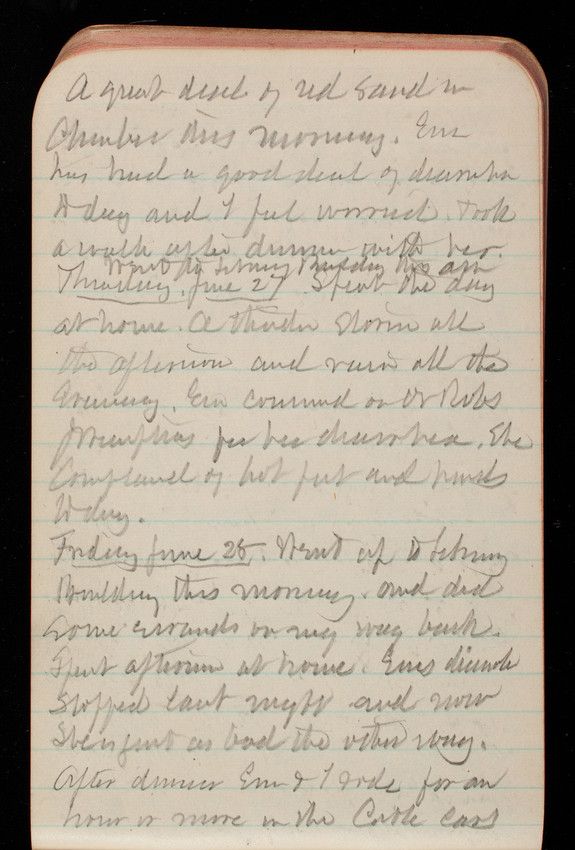 A great deal of red sand in
Chamber this morning. Em
has had a good deal of diarrhea
to day and I feel worried. Took
a walk after dinner with her.
Went to Library Building this aft
Thursday, June 27 Spent the day
at home. A thunder storm all
the afternoon and rain all the
Evening. Em continued on Dr Robs
prescriptions for her diarrhea. She
complained of hot feet and hands
to day.
Friday June 28. Went up to Library
Building this morning and did
some errands on my way back.
Spent afternoon at home. Ems diarrhea
stopped last night and now
she is just as bad the other way.
After dinner Em & I rode for an
hour or more in the Cable cars